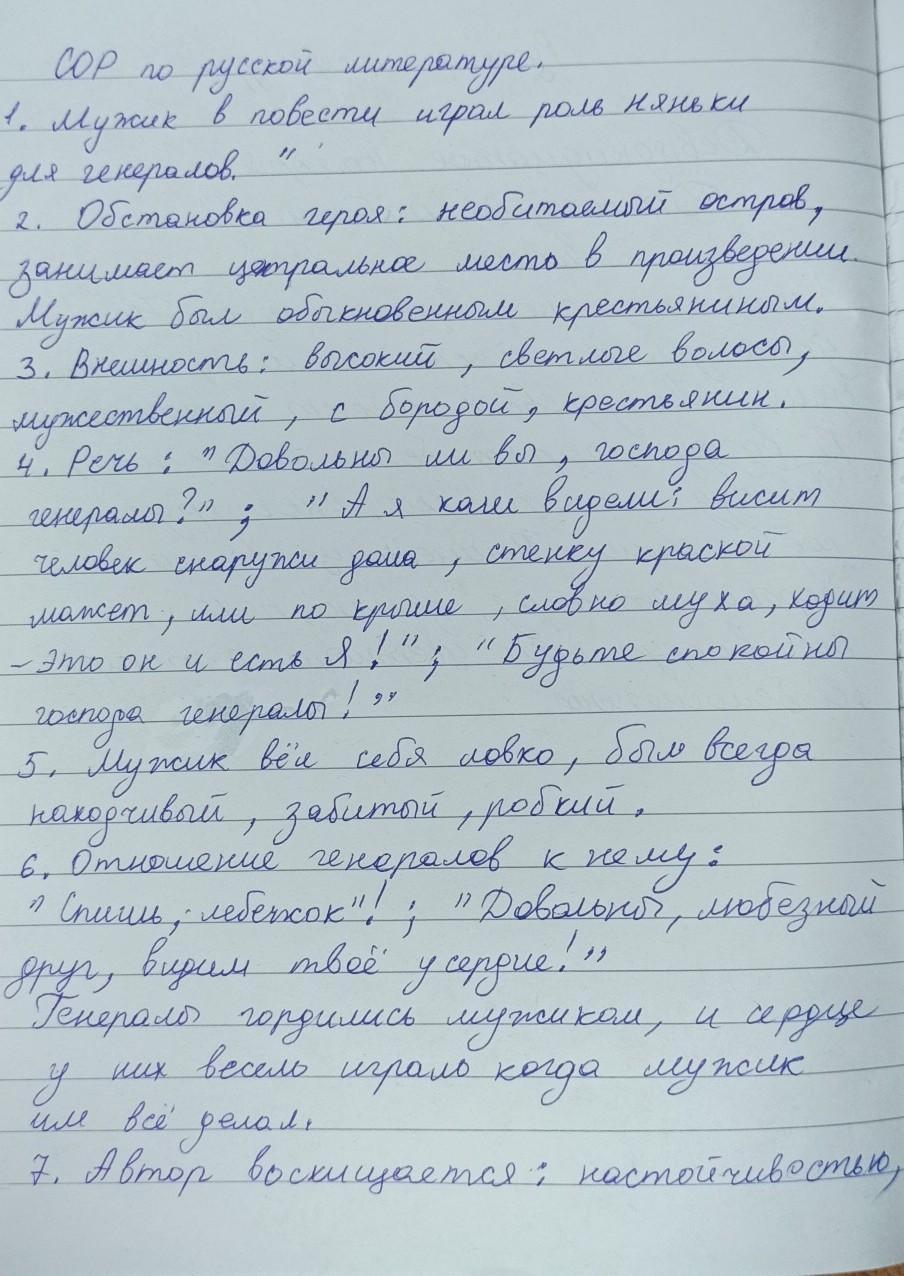 СОР по русской литературе.
1. Мужик в повести играл роль няньки
для генералов. "
2. Обстановка героя: необитаемый остров,
занимает цетральное место в произведении.
Мужик был обыкновенным крестьяниным.
3. Внешность: высокий, светлые волосы,
мужественный, с бородой, крестьянин.
4. Речь: "Довольны ли вы, господа
генералы?"; "А я коли видели: висит
человек снаружи дома, стенку краской
мажет, или по крыше, словно муха, ходит
- Это он и есть Я!"; "Будьте спокойны
господа генералы!"
5. Мужик вёл себя ловко, был всегда
находчивый, забитый, робкий.
6. Отношение генералов к нему:
"Спишь, лебежок"!; "Довольны, любезный
друг, видим твоё усердие!"
Генералы гордились мужиком, и сердце
у них весело играло когда мужик
им всё делал.
7. Автор восхищается: настойчивостью,